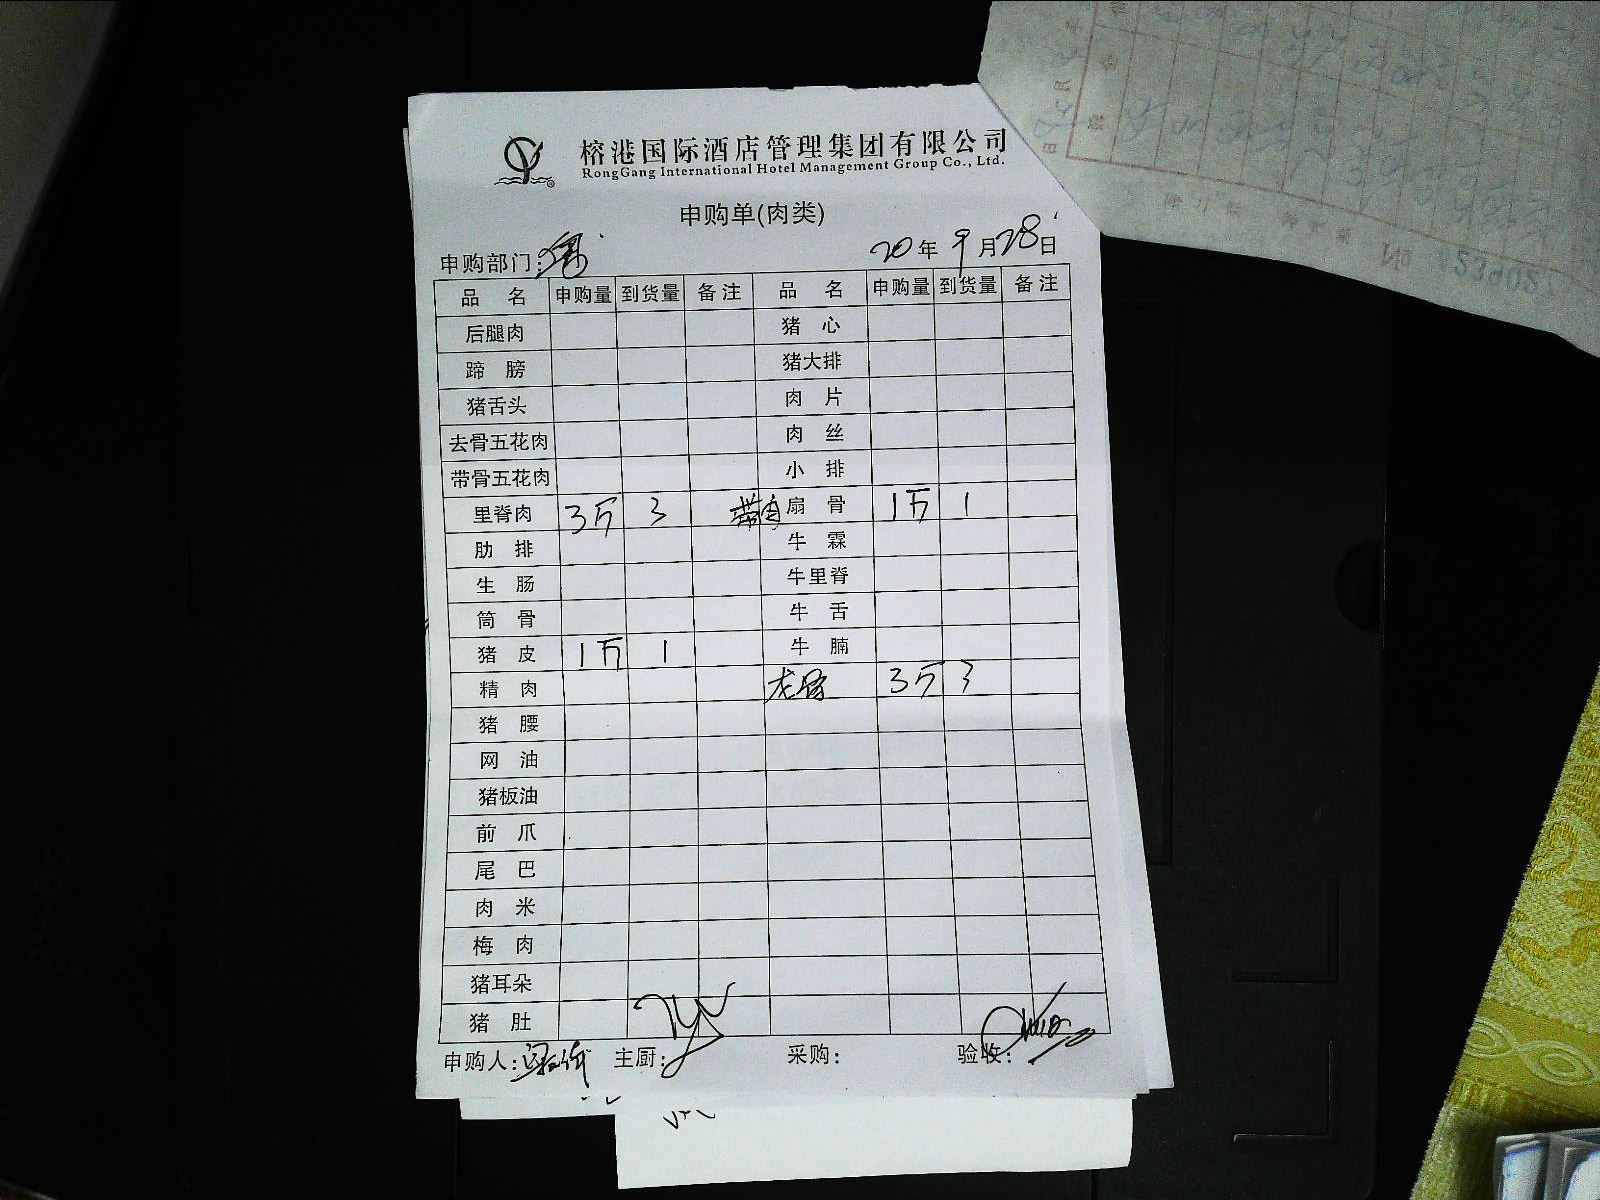 榕港国际酒店管理集团有限公司
RongGang International Hotel Management Group Co., Ltd.
申购单(肉类)
申购部门: 20年9月28日
品名 申购量 到货量 备注 品名 申购量 到货量 备注
后腿肉 猪心
蹄膀 猪大排
猪舌头 肉片
去骨五花肉 肉丝
带骨五花肉 小排
里脊肉 3斤 3 带肉扇骨 1斤 1
肋排 牛霖
生肠 牛里脊
筒骨 牛舌
猪皮 1斤 1 牛腩
精肉 龙骨 3斤 3
猪腰
网油
猪板油
前爪
尾巴
肉米
梅肉
猪耳朵
猪肚
申购人: 主厨: 采购: 验收: